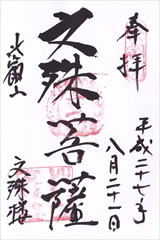 奉拝
平成二十七年
八月二十一日
文殊菩薩
比叡山
文殊楼